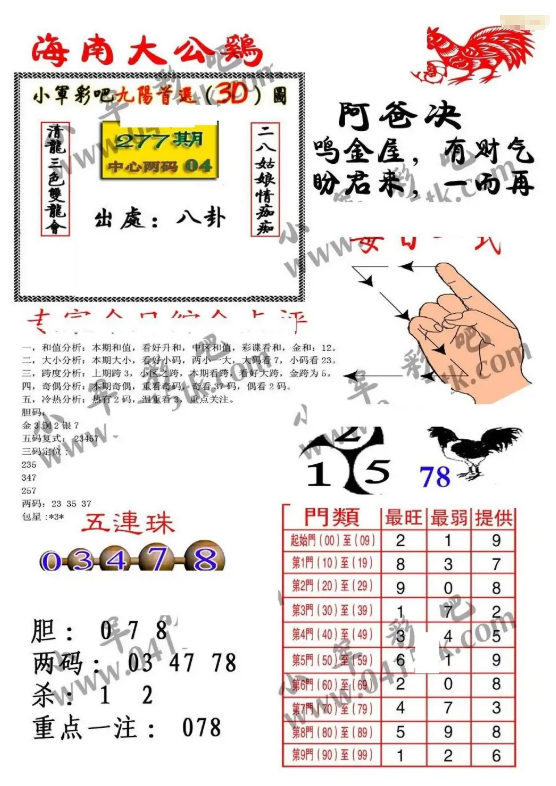 海南大公鷄
小軍彩吧九陽首選（3D）圖
清龍三色雙龍會
277期
中心两码 04
二八姑娘情痴痴
出處：八卦
阿爸决
鸣金屋，有财气
盼君来，一而再
每日一式
专家今日综合点评
一，和值分析：本期和值，看好升和，中区和值，彩谍看和，金和：12。
二，大小分析：本期大小，看好小码，两小一大，大码看7，小码看23。
三，跨度分析：上期跨3，小区之跨，本期看跨，看好大跨，金跨为5。
四，奇偶分析：本期奇偶，重看奇码，奇看37码，偶看2码。
五，冷热分析：热有2码，温重看3，重点关注。
胆码：
金3铜2银7
五码复式：23457
三码定位：
235
347
257
两码：23 35 37
包星：*3*
2
1 5
78
五連珠
0 3 4 7 8
胆：0 7 8
两码：03 47 78
杀：1 2
重点一注：078
門類 最旺 最弱 提供
起始門（00）至（09） 2 1 9
第1門（10）至（19） 8 3 7
第2門（20）至（29） 9 0 8
第3門（30）至（39） 1 7 2
第4門（40）至（49） 3 4 5
第5門（50）至（59） 6 1 9
第6門（60）至（69） 2 0 8
第7門（70）至（79） 4 7 3
第8門（80）至（89） 5 9 8
第9門（90）至（99） 1 2 6
小军彩吧